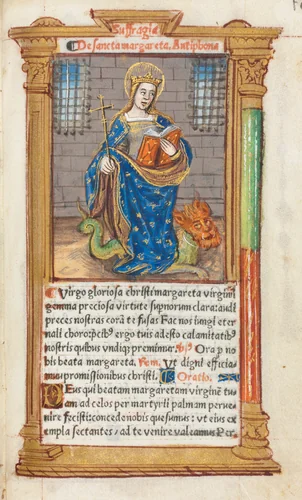 Suffragia
De sancta margareta. Antiphona
Virgo gloriosa christi margareta virginū
gemma preciosa virtute supnorum clara: audi
preces nostras corā te fusas Fac nos iungi eter
nali choro: pctis ergo tuis adesto calamitatib
nostris quibus vndiqꝫ premimur. Ora p no
bis beata margareta. Ut digni efficia
mur promissionibus christi. Oratio.
Deus qui beatam margaretam virginē tu
am ad celos per martyrii palmam perue
nire fecisti: concede nobis quesumus: vt eius ex
empla sectantes / ad te venire valeamus Per.